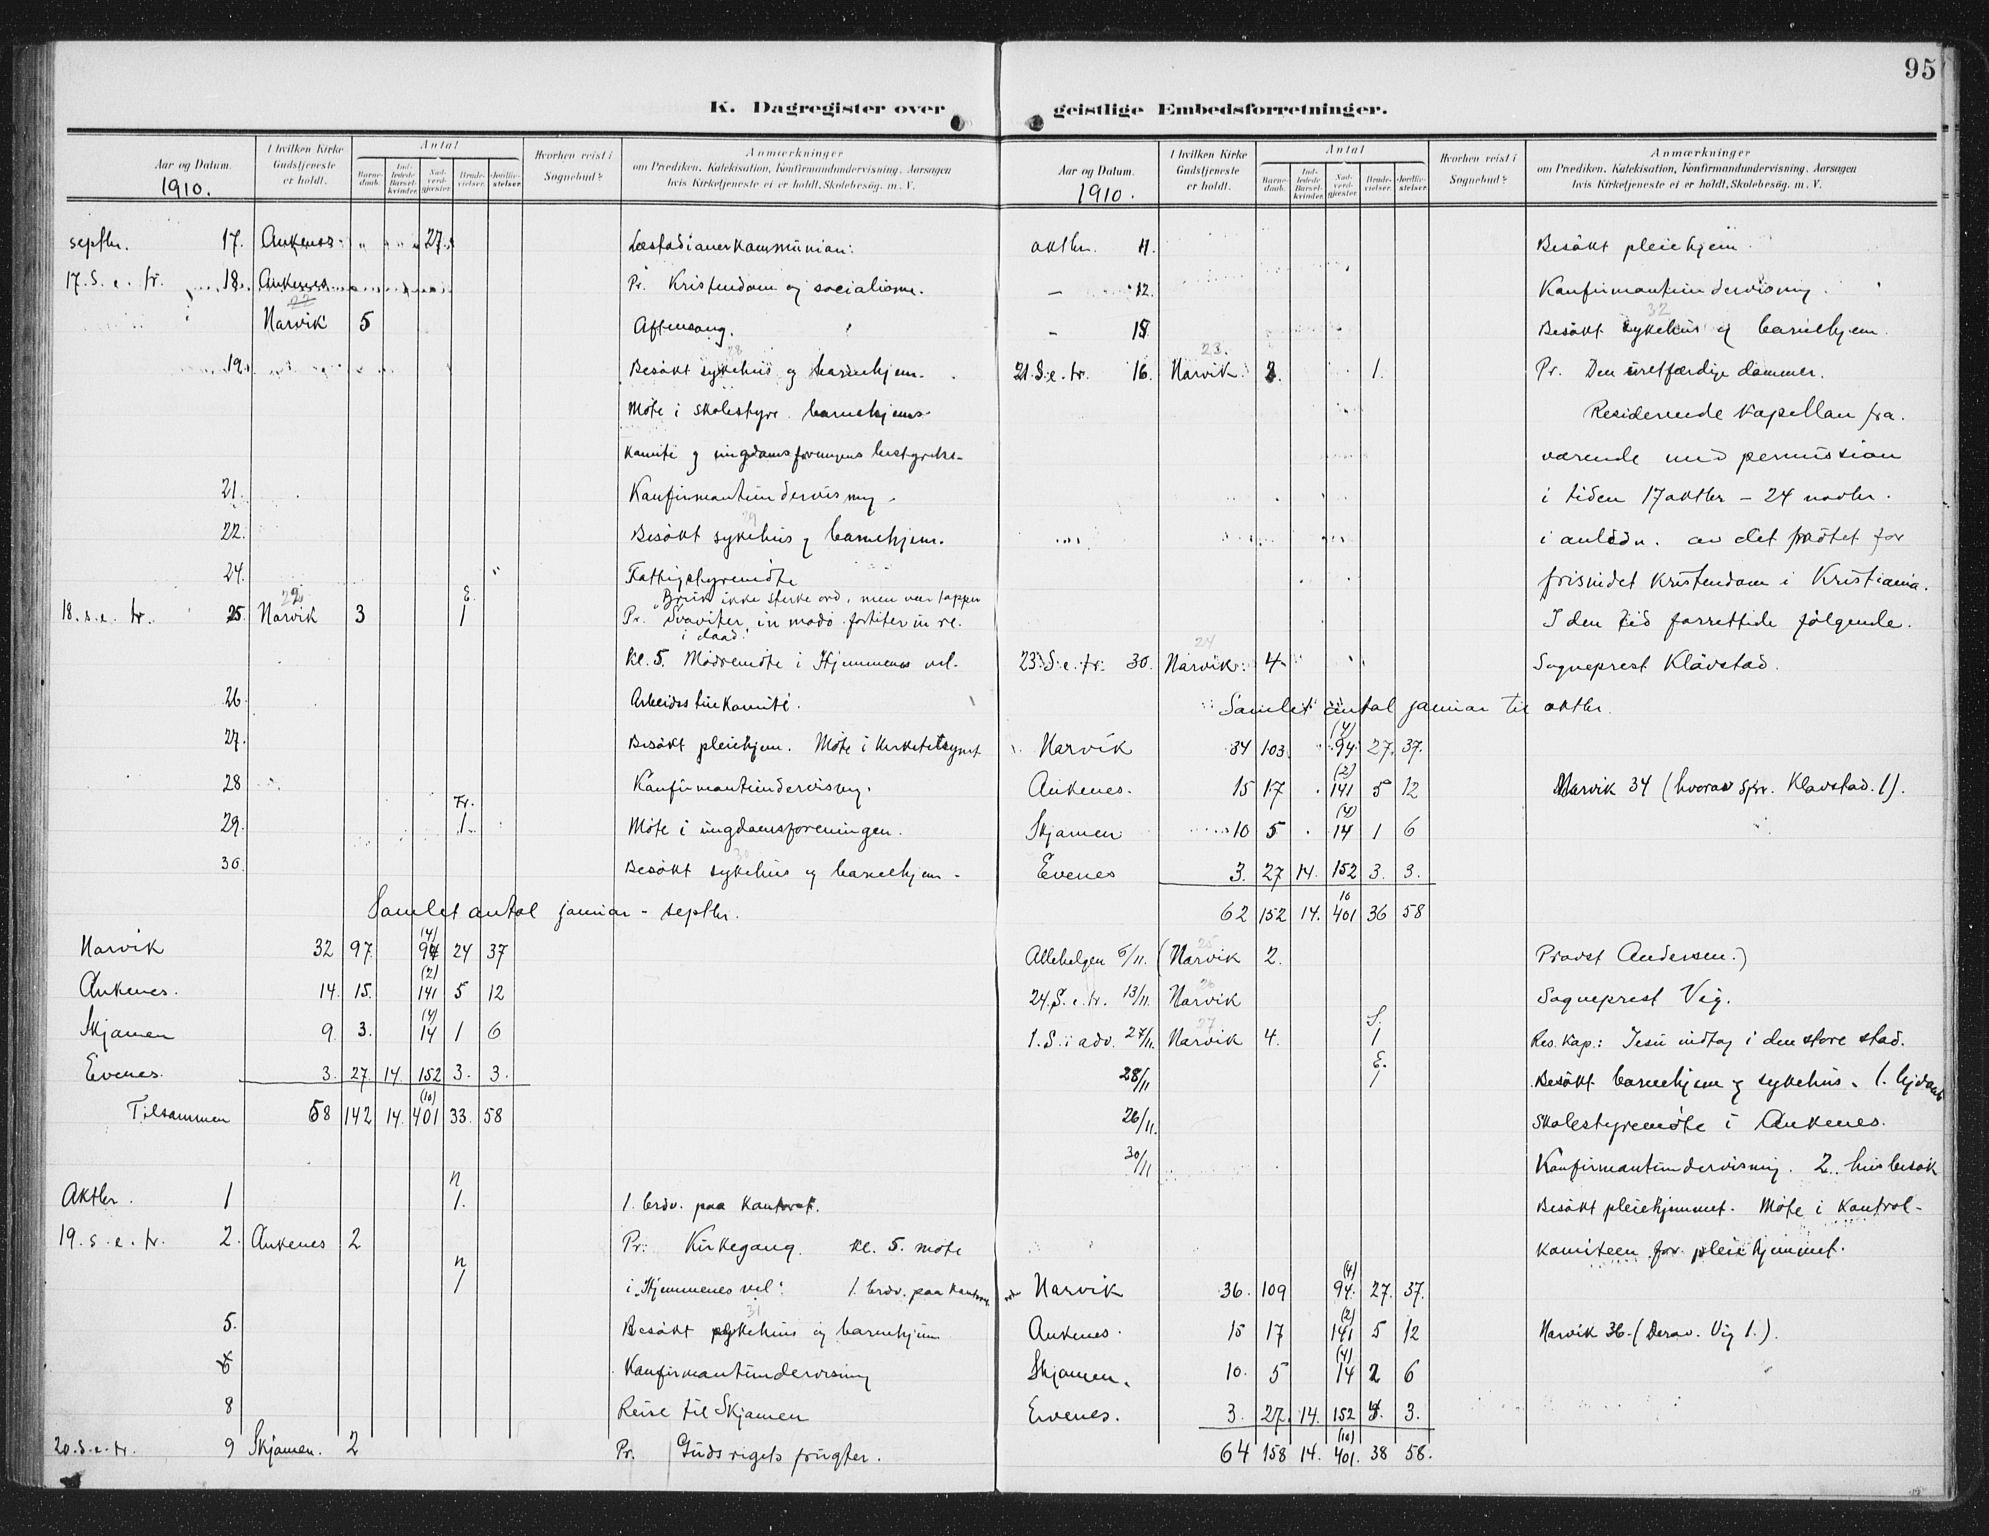 95
K. Dagregister over geistlige Embedsforretninger.
Aar og Datum. 1910. I hvilken Kirke Gudstjeneste er holdt. Antal Barnedaab. Indledede Barselkvinder. Nadverdgjester. Brudevielser. Jordfæstelser. Hvorhen reist i Sognebud? Anmærkninger om Prædiken, Katekisation, Konfirmandundervisning, Aarsagen hvis Kirketjeneste ei er holdt, Skolebesøg, m. V.
septbr. 17. Ankenes " " " 27 Læstadianerkommunion.
17. S. e. tr. 18. Ankenes Pr. Kristendom og socialisme.
22
Narvik 5 Aftensang.
28
19. Besøkt sykehus og barnehjem.
Møte i skolestyre. barnehjems-
komite og ungdomsforeningens bestyrelse.
21. Konfirmantundervisning.
29
22. Besøkt sykehus og barnehjem.
24. Fattigstyremøte
"Bruk ikke sterke ord, men vær tapper
18. s. e. tr. 25 Narvik 3 E. 1 Pr. Svaviter in modo fortiter in re.
i daad."
Kl. 5. Mødremøte i Hjemmenes vel.
26.
27. Besøkt pleiehjem. Møte i kirketilsynet
28 Konfirmantundervisning.
29. Fr. 1. Møte i ungdomsforeningen.
30
30. Besøkt sykehus og barnehjem.
Samlet antal januar - septbr.
Narvik 32 97 (4) 94 24 37
Ankenes. 14. 15. (2) 141 5 12
Skjomen 9. 3. (4) 14 1 6
Evenes. 3. 27. 14. 152 3. 3.
Tilsammen 58 142 14. (10) 401 33. 58
Oktbr. 1 n 1. 1. brdv. paa kontoret.
19. s. e. tr. 2. Ankenes 2 Pr. Kirkegang. Kl. 5. møte
n 1 i "Hjemmenes vel". 1. brdv. paa kontoret
31
5. Besøkt sykehus og barnehjem
6 Konfirmantundervisning
8 Reise til Skjomen
20. s. e. tr. 9 Skjomen. 2 Pr. Guds rigets frugter.
Aar og Datum. 1910. I hvilken Kirke Gudstjeneste er holdt. Antal Barnedaab. Indledede Barselkvinder. Nadverdgjester. Brudevielser. Jordfæstelser. Hvorhen reist i Sognebud? Anmærkninger om Prædiken, Katekisation, Konfirmandundervisning, Aarsagen hvis Kirketjeneste ei er holdt, Skolebesøg, m. V.
oktbr. 11. Besøkt pleiehjem
— 12. Konfirmantundervisning.
32
- 15. Besøkt sykehus og barnehjem.
23.
21. S. e. tr. 16. Narvik 3. 1. Pr. Den uretfærdige dommer.
Residerende kapellan fra-
værende med permission
i tiden 17 oktbr - 24 novbr.
i anledn. av det møtet for
frisindet kristendom i Kristiania.
I den tid forrettide følgende.
24
23. S. e. tr. 30. Narvik. 4 Sogneprest Klavstad.
Samlet antal januar til oktbr.
Narvik 34 103. (4) 94 27. 37.
Ankenes. 15 17 (2) 141 5 12 Narvik 34 (hvorav spr. Klavstad. 1).
Skjomen 10 5 (4) 14 1 6
Evenes 3. 27 14. 152 3. 3.
62 152 14. 10 401 36 58
25
Allehelgen 6/11. (Narvik 2. Provst Andersen.)
26
24. S. e. tr. 13/11. Narvik Sogneprest Vig.
27
1. S. i adv. 27/11. Narvik 4. S. 1 Res. Kap.: Jesu indtog i den store stad.
28/11 E. 1 Besøkt barnehjem og sykehus. 1.
26/11. Skolestyremøte i Ankenes.
30/11 Konfirmantundervisning. 2. husbesøk
Besøkt pleiehjemmet. Møte i kontrol-
komiteen for pleiehjemmet.
Narvik 36. 109 (4) 94. 27. 37.
Ankenes. 15 17 (2) 141 5 12 Narvik 36. (Derav. Vig 1.).
Skjomen. 10. 5 (4) 14 2 6
Evenes. 3. 27. 14. 152 3.
64 158 14. (10) 401. 38 58.